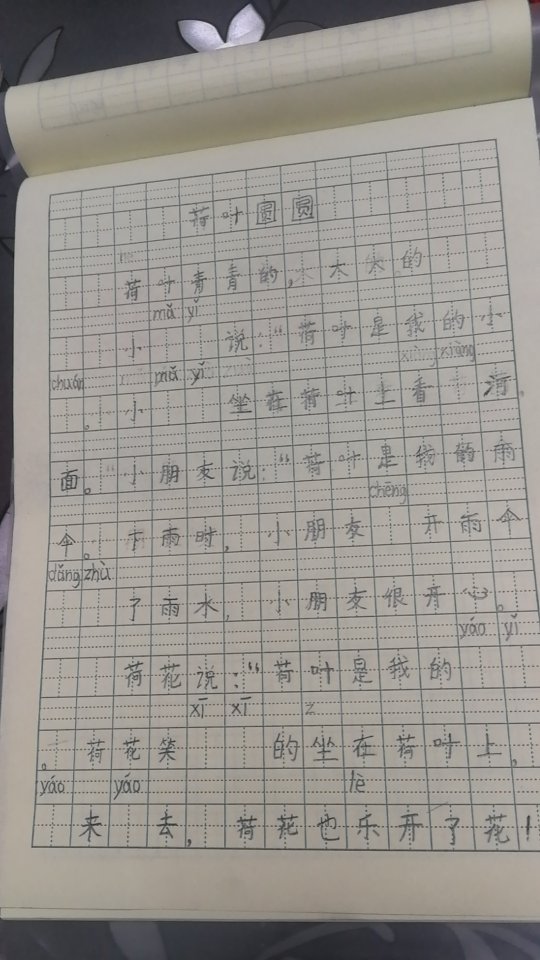 荷叶圆圆
荷叶青青的,木木的
mǎ yǐ
小 说:“荷叶是我的小
chuán mǎ yǐ xiāng xiāng
。小 坐在荷叶上看
面。“小朋友说:“荷叶是我的雨
chēng
伞。下雨时,小朋友 开雨伞
dǎng zhù
了雨水,小朋友很开心。
yáo yǐ
荷花说:“荷叶是我的
xī xī z
。荷花笑 的坐在荷叶上,
yáo yáo lè
来 去,荷花也乐开了花!